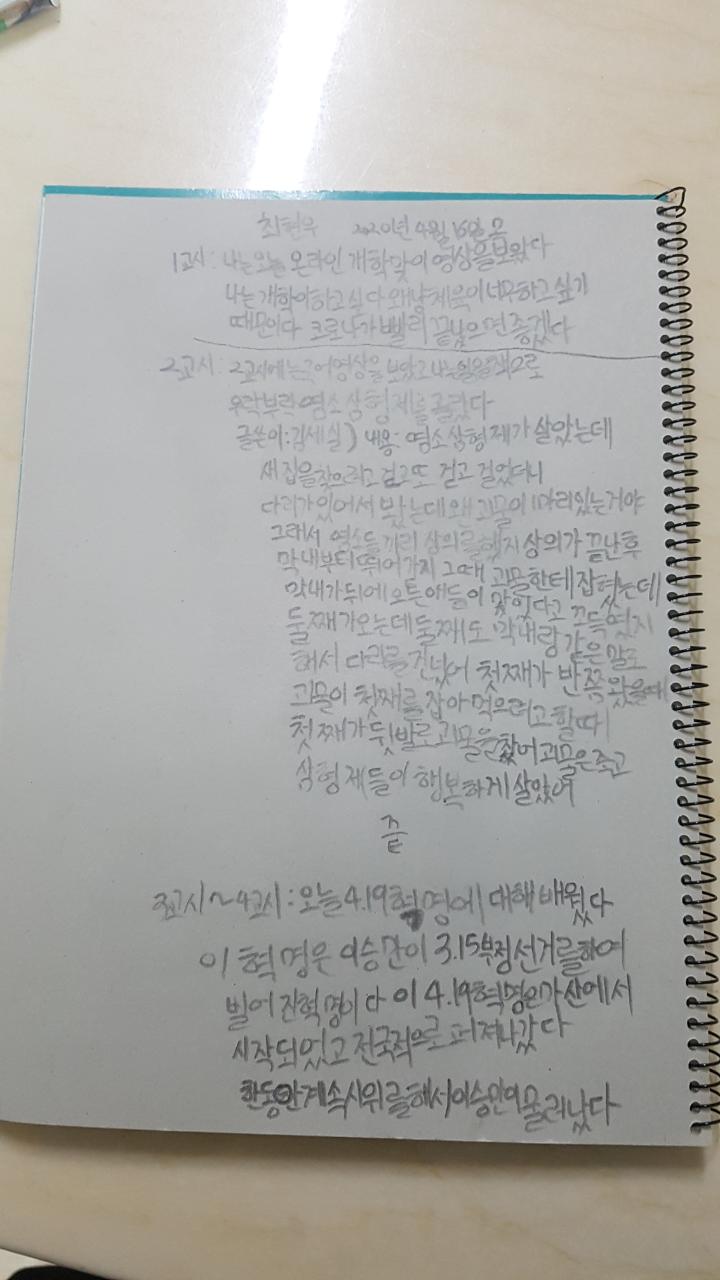 최현우 2020년 4월 16일 목
1교시: 나는 오늘 온라인 개학맞이 영상을 보왔다
나는 개학이하고 싶다 왜냐 체육이 너무하고 싶기
때문이다 크로나가 빨리 끝났으면 좋겠다
2교시: 2교시에는 국어영상을 보았고 나는 읽을책으로
우락부락 염소 삼형제를 골랐다
글쓴이:김세실) 내용: 염소 삼형제가 살았는데
새집을 찾으려고 걷고 또 걷고 걸었더니
다리가 있어서 봤는데 왠 괴물이 1마리 있는거야
그래서 염소들끼리 상의를 했지 상의가 끝난후
막내부터 뛰어가지 그때 괴물한테 잡혔는데
막내가 뒤에 오는 애들이 맛있다고 꼬득였지
둘째가 오는데 둘째도 막내랑 같은 말로
해서 다리를 건넜어 첫째가 반쯤 왔을때
괴물이 첫째를 잡아 먹으려고 할때
첫째가 뒷발로 괴물을 찼어 괴물은 죽고
삼형제들이 행복하게 살았어
끝
3교시~4교시: 오늘 4.19혁명에 대해 배웠다
이 혁명은 이승만이 3.15부정선거를 하여
벌어진 혁명이다 이 4.19혁명은 마산에서
시작되었고 전국적으로 퍼져나갔다
한동안 계속 시위를 해서 이승만이 물러났다